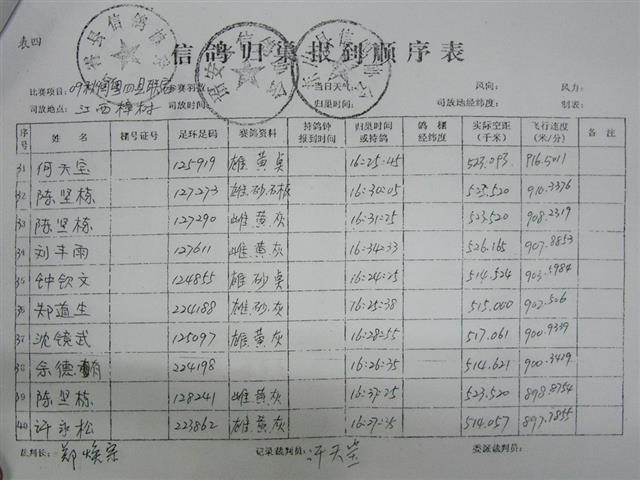 表四
信鸽归巢报到顺序表
比赛项目: 09秋 四县联 参赛羽数: 当日天气: 风向: 风力:
司放地点: 江西樟树 司放时间: 归巢时间: 司放地经纬度: 制表:
序号 姓名 棚号证号 足环足码 赛鸽资料 持鸽钟报到时间 归巢时间或持鸽 鸽棚经纬度 实际空距(千米) 飞行速度(米/分) 备注
31 何天宝 125919 雄 黄 16:25:45 523.093 916.5011
32 陈坚栋 127273 雄.砂. 16:30:05 523.520 910.3376
33 陈坚栋 127290 雌 黄灰 16:31:25 523.520 908.2319
34 刘丰雨 127611 雌 黄灰 16:34:33 526.165 907.8853
35 钟钦文 124855 雄 砂 16:24:25 514.524 903.5984
36 郑道生 224188 雄.砂.灰 16:25:38 515.000 902.526
37 沈镜武 125097 雄.黄灰 16:28:55 517.061 900.9339
38 余德 224198 16:26:35 514.621 900.3429
39 陈坚栋 128241 雌黄灰 16:37:25 523.520 898.8754
40 许永松 223862 雄黄灰 16:27:35 514.057 897.7855
裁判长: 郑焕宗 记录裁判员: 委派裁判员: